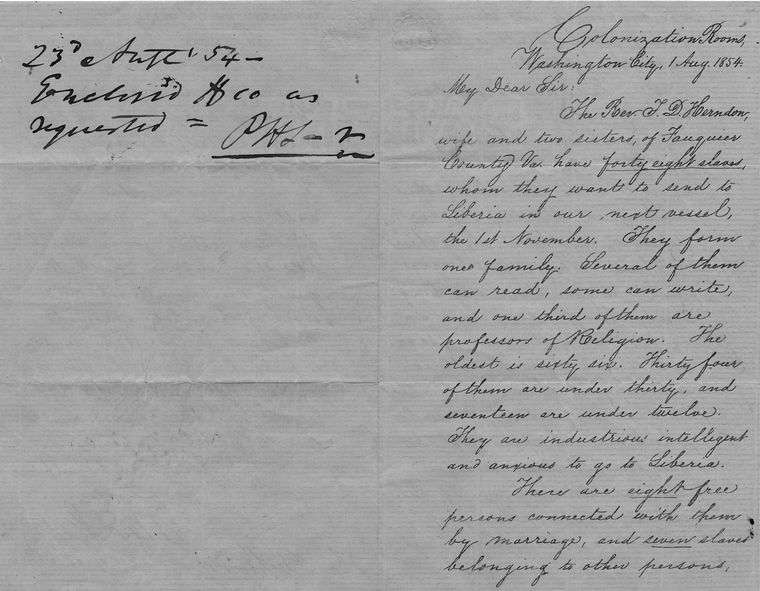 23d 54 -
Enclosed as
requested =
Colonization Rooms,
Washington City, 1 Aug. 1854.
My Dear Sir:
The Rev. T. D. Herndon,
wife and two sisters, of Fauquier
County Va. have forty eight slaves,
whom they want to send to
Liberia in our next vessel,
the 1st November. They form
one family. Several of them
can read, some can write,
and one third of them are
professors of Religion. The
oldest is sixty six. Thirty four
of them are under thirty, and
seventeen are under twelve.
They are industrious intelligent
and anxious to go to Liberia.
There are eight free
persons connected with them
by marriage, and seven slaves
belonging to other persons,